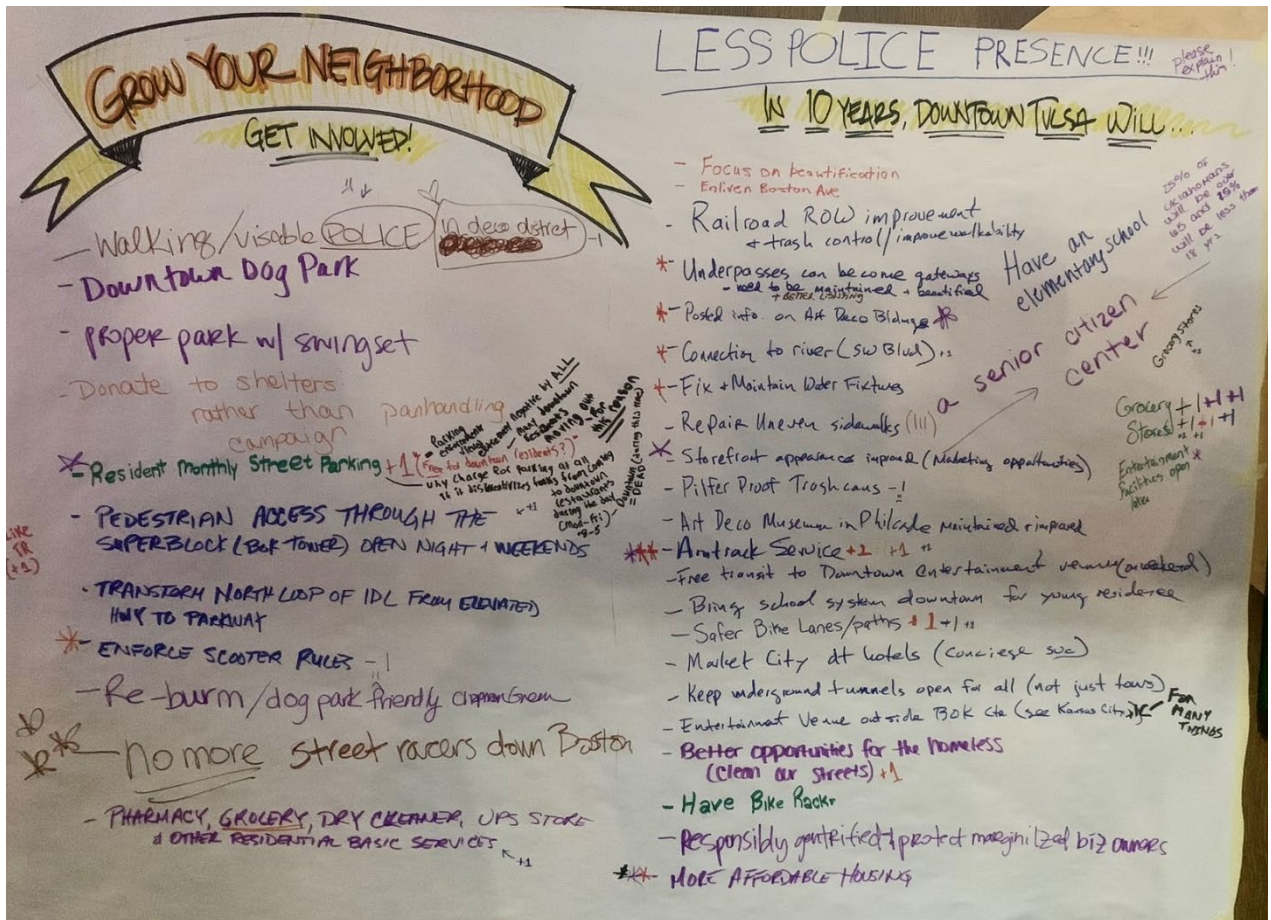 GROW YOUR NEIGHBORHOOD
GET INVOLVED!
- Walking/visable POLICE in deco district -1
- Downtown Dog Park
- proper park w/ swingset
- Donate to shelters
rather than panhandling
campaign
- Resident Monthly Street Parking +1 (Free for downtown residents?)
why charge for parking at all
It is disincentivizing folks from coming
to downtown
restaurants
during the day
(mon-Fri)
8-5
Downtown = DEAD (during this time)
- Parking
negative by ALL
- Many downtown
residents
moving out
for
this reason
+1
- PEDESTRIAN ACCESS THROUGH THE
SUPERBLOCK (BOK TOWER) OPEN NIGHT + WEEKENDS
LIKE
TR
(+1)
- TRANSFORM NORTH LOOP OF IDL FROM ELEVATED
HWY TO PARKWAY
- ENFORCE SCOOTER RULES -1
- Re-burm/dog park friendly Chapman Green
- no more street racers down Boston
- PHARMACY, GROCERY, DRY CLEANER, UPS STORE
& OTHER RESIDENTIAL BASIC SERVICES
+1
LESS POLICE PRESENCE!!!
please
explain
this!
IN 10 YEARS, DOWNTOWN TULSA WILL...
- Focus on beautification
- Enliven Boston Ave
- Railroad ROW improvement
+ trash control/improve walkability
* - Underpasses can become gateways
- need to be maintained + beautified
+ BETTER LIGHTING
* - Posted info. on Art Deco Bldngs *
* - Connection to river (SW Blvd) +1
- Fix + Maintain Water Fixtures
- Repair Uneven sidewalks (!!!)
* - Storefront appearance improved (Marketing opportunities)
- Pilfer Proof Trashcans -!
- Art Deco Museum in Philcade maintained + improved
*** - Amtrack Service +1 +1 +1
- Free transit to Downtown entertainment venues (on weekend)
- Bring school system downtown for young residence
- Safer Bike Lanes/paths +1 +1 +1
- Market City at hotels (conciege svc)
- Keep underground tunnels open for all (not just tours)
- Entertainment Venue outside BOK Ctr (see Kansas City)
FOR
MANY
THINGS
- Better opportunities for the homeless
(clean our streets) +1
- Have Bike Racks
- Responsibly gentrified & protect marginilzed biz owners
** - MORE AFFORDABLE HOUSING
Have an
elementary school
a senior citizen
center
25% of
oklahomans
will be over
65 and
will be less than
18 yrs
Grocery stores
Grocery +1 +1 +1
Stores +1 +1 +1
Entertainment *
facilities open
later